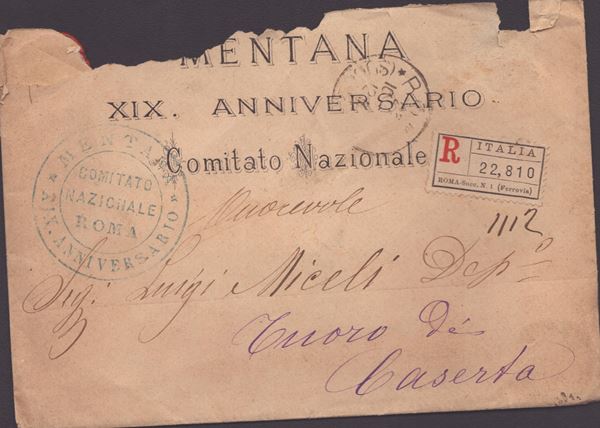 MENTANA
XIX. ANNIVERSARIO
Comitato Nazionale
MENTANA
COMITATO
NAZIONALE
ROMA
XIX. ANNIVERSARIO
R
ITALIA
22,810
ROMA-Succ. N. 1 (Ferrovia)
1112
Onorevole
Sig. Luigi Miceli Dep.o
Tuoro di
Caserta